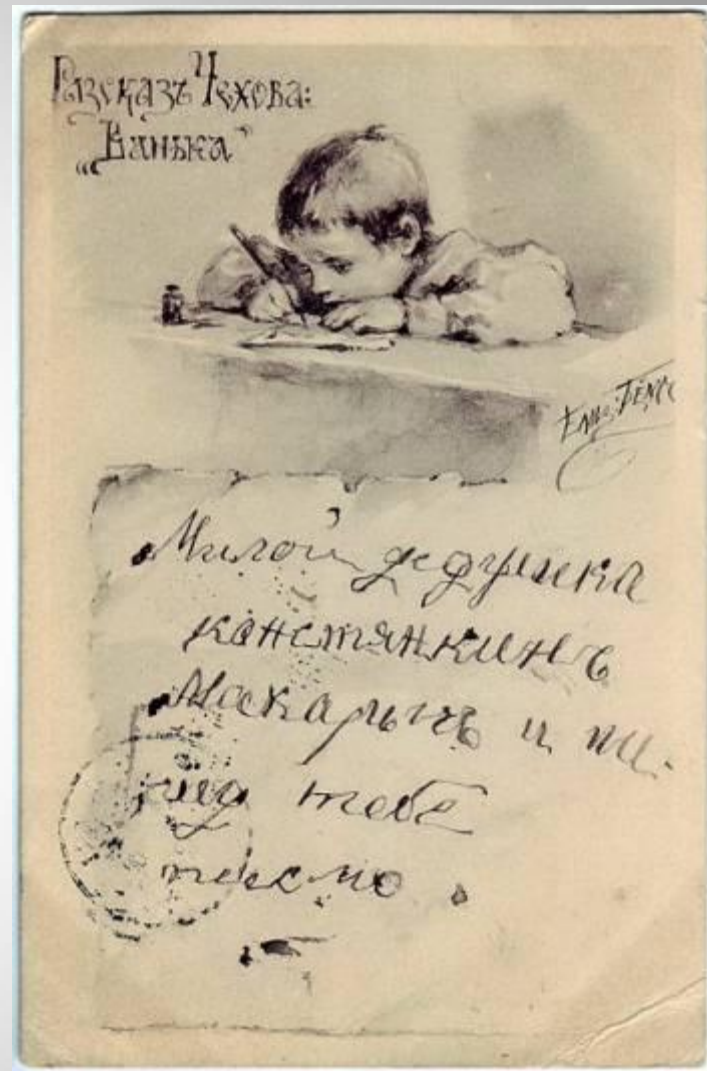 Разсказъ Чехова:
„Ванька"
Елис. Бемъ
Милой дедушка
констянкинъ
Макарычъ и пи-
шу тебе
письмо.